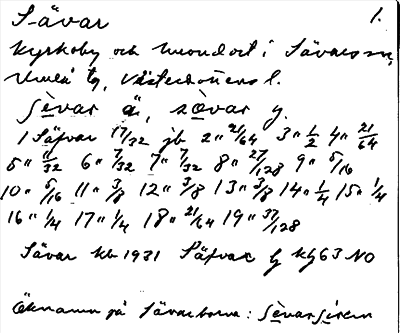 Sävar 1.
Kyrkoby och mondort i Sävars sn,
Umeå tg, Västerbottens l.
sèvar ä, sövar y.
1 Säfvar 17/32 jb 2" 21/64 3" 1/2 4" 21/64
5" 11/32 6" 7/32 7" 7/32 8" 27/128 9" 5/16
10" 5/16 11" 3/8 12" 3/8 13" 3/8 14" 1/4 15" 1/4
16" 1/4 17" 1/4 18" 21/64 19" 37/128
Sävar kb 1931 Säfvar kg 63 NO
Öknamn på Sävarborna: